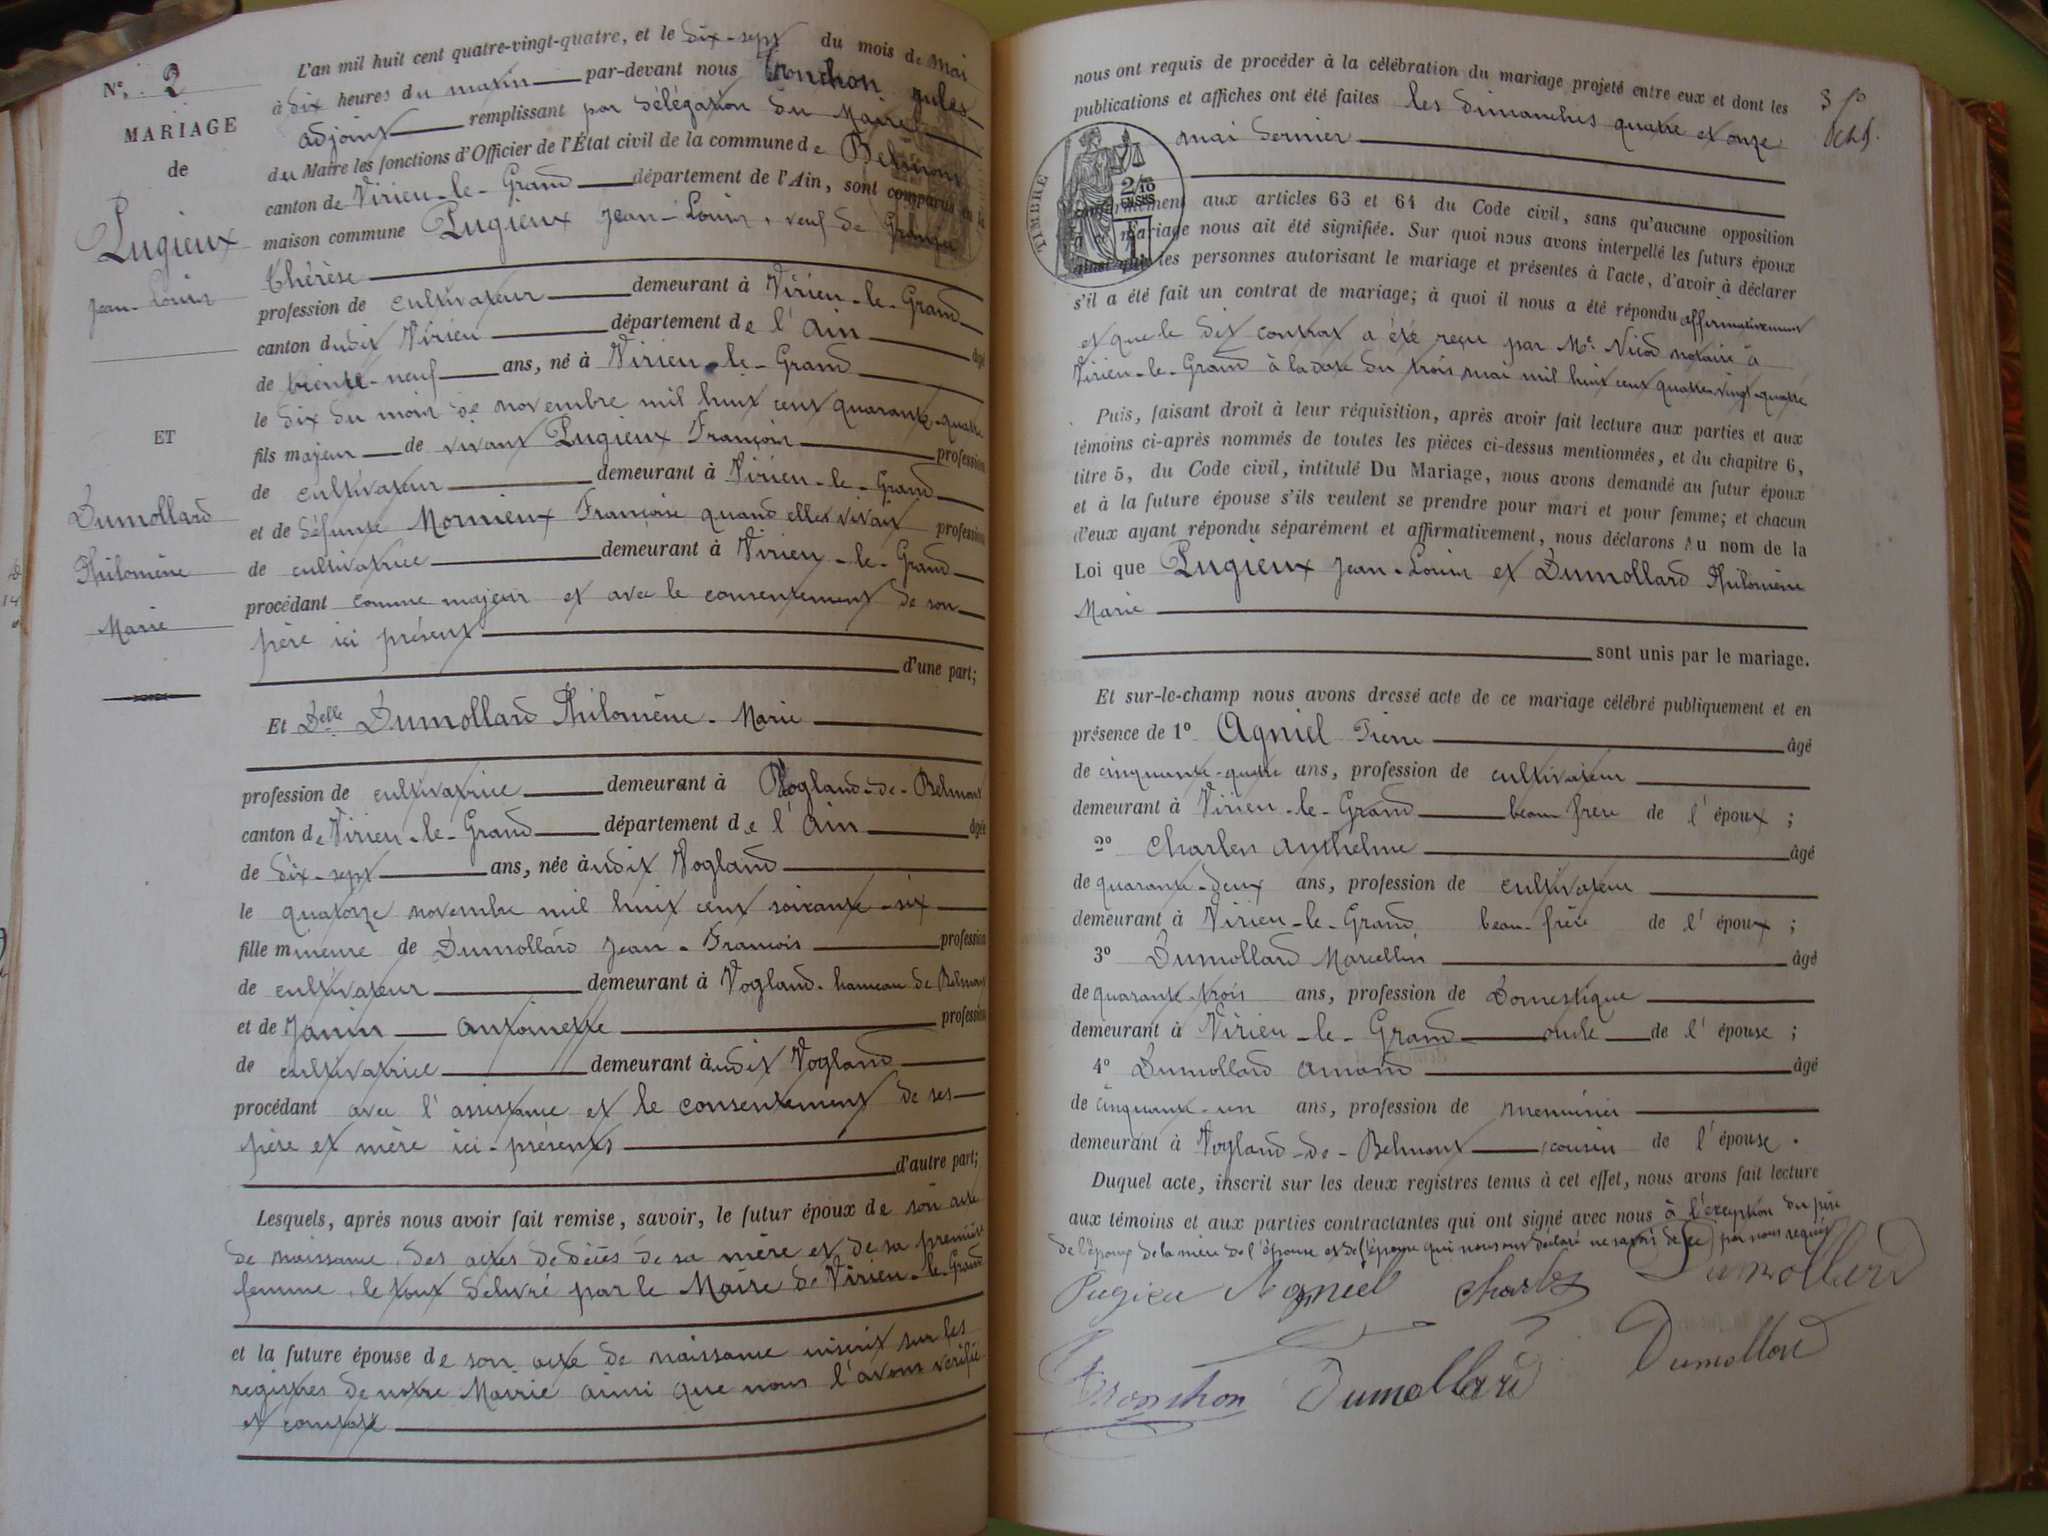 N°. 2
MARIAGE
de
Pugieux
Jean-Louis
ET
Dumollard
Philomène
Marie
L'an mil huit cent quatre-vingt-quatre, et le dix-sept du mois de Mai
à dix heures du matin par-devant nous Tronchon Jules
adjoint remplissant par délégation du Maire
du Maire les fonctions d'Officier de l'État civil de la commune de Belmont
canton de Virieu-le-Grand département de l'Ain, sont comparus en la
maison commune Pugieux Jean-Louis, veuf de
Thérèse
profession de cultivateur demeurant à Virieu-le-Grand
canton dudit Virieu département de l'Ain âgé
de trente-neuf ans, né à Virieu-le-Grand
le dix du mois de novembre mil huit cent quarante-quatre
fils majeur de vivant Pugieux François profession
de cultivateur demeurant à Virieu-le-Grand
et de défunte Mornieux Françoise quand elle vivait profession
de cultivatrice demeurant à Virieu-le-Grand
procédant comme majeur et avec le consentement de son
père ici présent
d'une part;
Et Delle Dumollard Philomène-Marie
profession de cultivatrice demeurant à Vogland-de-Belmont
canton de Virieu-le-Grand département de l'Ain âgée
de dix-sept ans, née àudit Vogland
le quatorze novembre mil huit cent soixante-six
fille mineure de Dumollard Jean-François profession
de cultivateur demeurant à Vogland-hameau de Belmont
et de Janin Antoinette profession
de cultivatrice demeurant àudit Vogland
procédant avec l'assistance et le consentement de ses
père et mère ici-présents
d'autre part;
Lesquels, après nous avoir fait remise, savoir, le futur époux de son acte
de naissance, des actes de décès de sa mère et de sa première
femme, le tout délivré par le Maire de Virieu-le-Grand
et la future épouse de son acte de naissance inscrit sur les
registres de notre Mairie ainsi que nous l'avons vérifié
et constaté
nous ont requis de procéder à la célébration du mariage projeté entre eux et dont les
publications et affiches ont été faites les dimanches quatre et onze
mai dernier
TIMBRE
2/10
EN SUS
conformément aux articles 63 et 64 du Code civil, sans qu'aucune opposition
à ce mariage nous ait été signifiée. Sur quoi nous avons interpellé les futurs époux
ainsi que les personnes autorisant le mariage et présentes à l'acte, d'avoir à déclarer
s'il a été fait un contrat de mariage; à quoi il nous a été répondu affirmativement
et que le dit contrat a été reçu par Me Nicod notaire à
Virieu-le-Grand à la date du trois mai mil huit cent quatre-vingt-quatre
Puis, faisant droit à leur réquisition, après avoir fait lecture aux parties et aux
témoins ci-après nommés de toutes les pièces ci-dessus mentionnées, et du chapitre 6,
titre 5, du Code civil, intitulé Du Mariage, nous avons demandé au futur époux
et à la future épouse s'ils veulent se prendre pour mari et pour femme; et chacun
d'eux ayant répondu séparément et affirmativement, nous déclarons Au nom de la
Loi que Pugieux Jean-Louis et Dumollard Philomène
Marie
sont unis par le mariage.
Et sur-le-champ nous avons dressé acte de ce mariage célébré publiquement et en
présence de 1° Agniel Pierre âgé
de cinquante-quatre ans, profession de cultivateur
demeurant à Virieu-le-Grand beau frère de l'époux ;
2° Charles Anthelme âgé
de quarante-deux ans, profession de cultivateur
demeurant à Virieu-le-Grand beau-frère de l'époux ;
3° Dumollard Marcellin âgé
de quarante-trois ans, profession de Domestique
demeurant à Virieu-le-Grand oncle de l'épouse ;
4° Dumollard Amand âgé
de cinquante-un ans, profession de menuisier
demeurant à Vogland-de-Belmont cousin de l'épouse.
Duquel acte, inscrit sur les deux registres tenus à cet effet, nous avons fait lecture
aux témoins et aux parties contractantes qui ont signé avec nous à l'exception du père
de l'époux de la mère de l'épouse et de l'épouse qui nous ont déclaré ne savoir de ce par nous requis
Pugieu Agniel Charles Dumollard
Tronchon Dumollard Dumollard